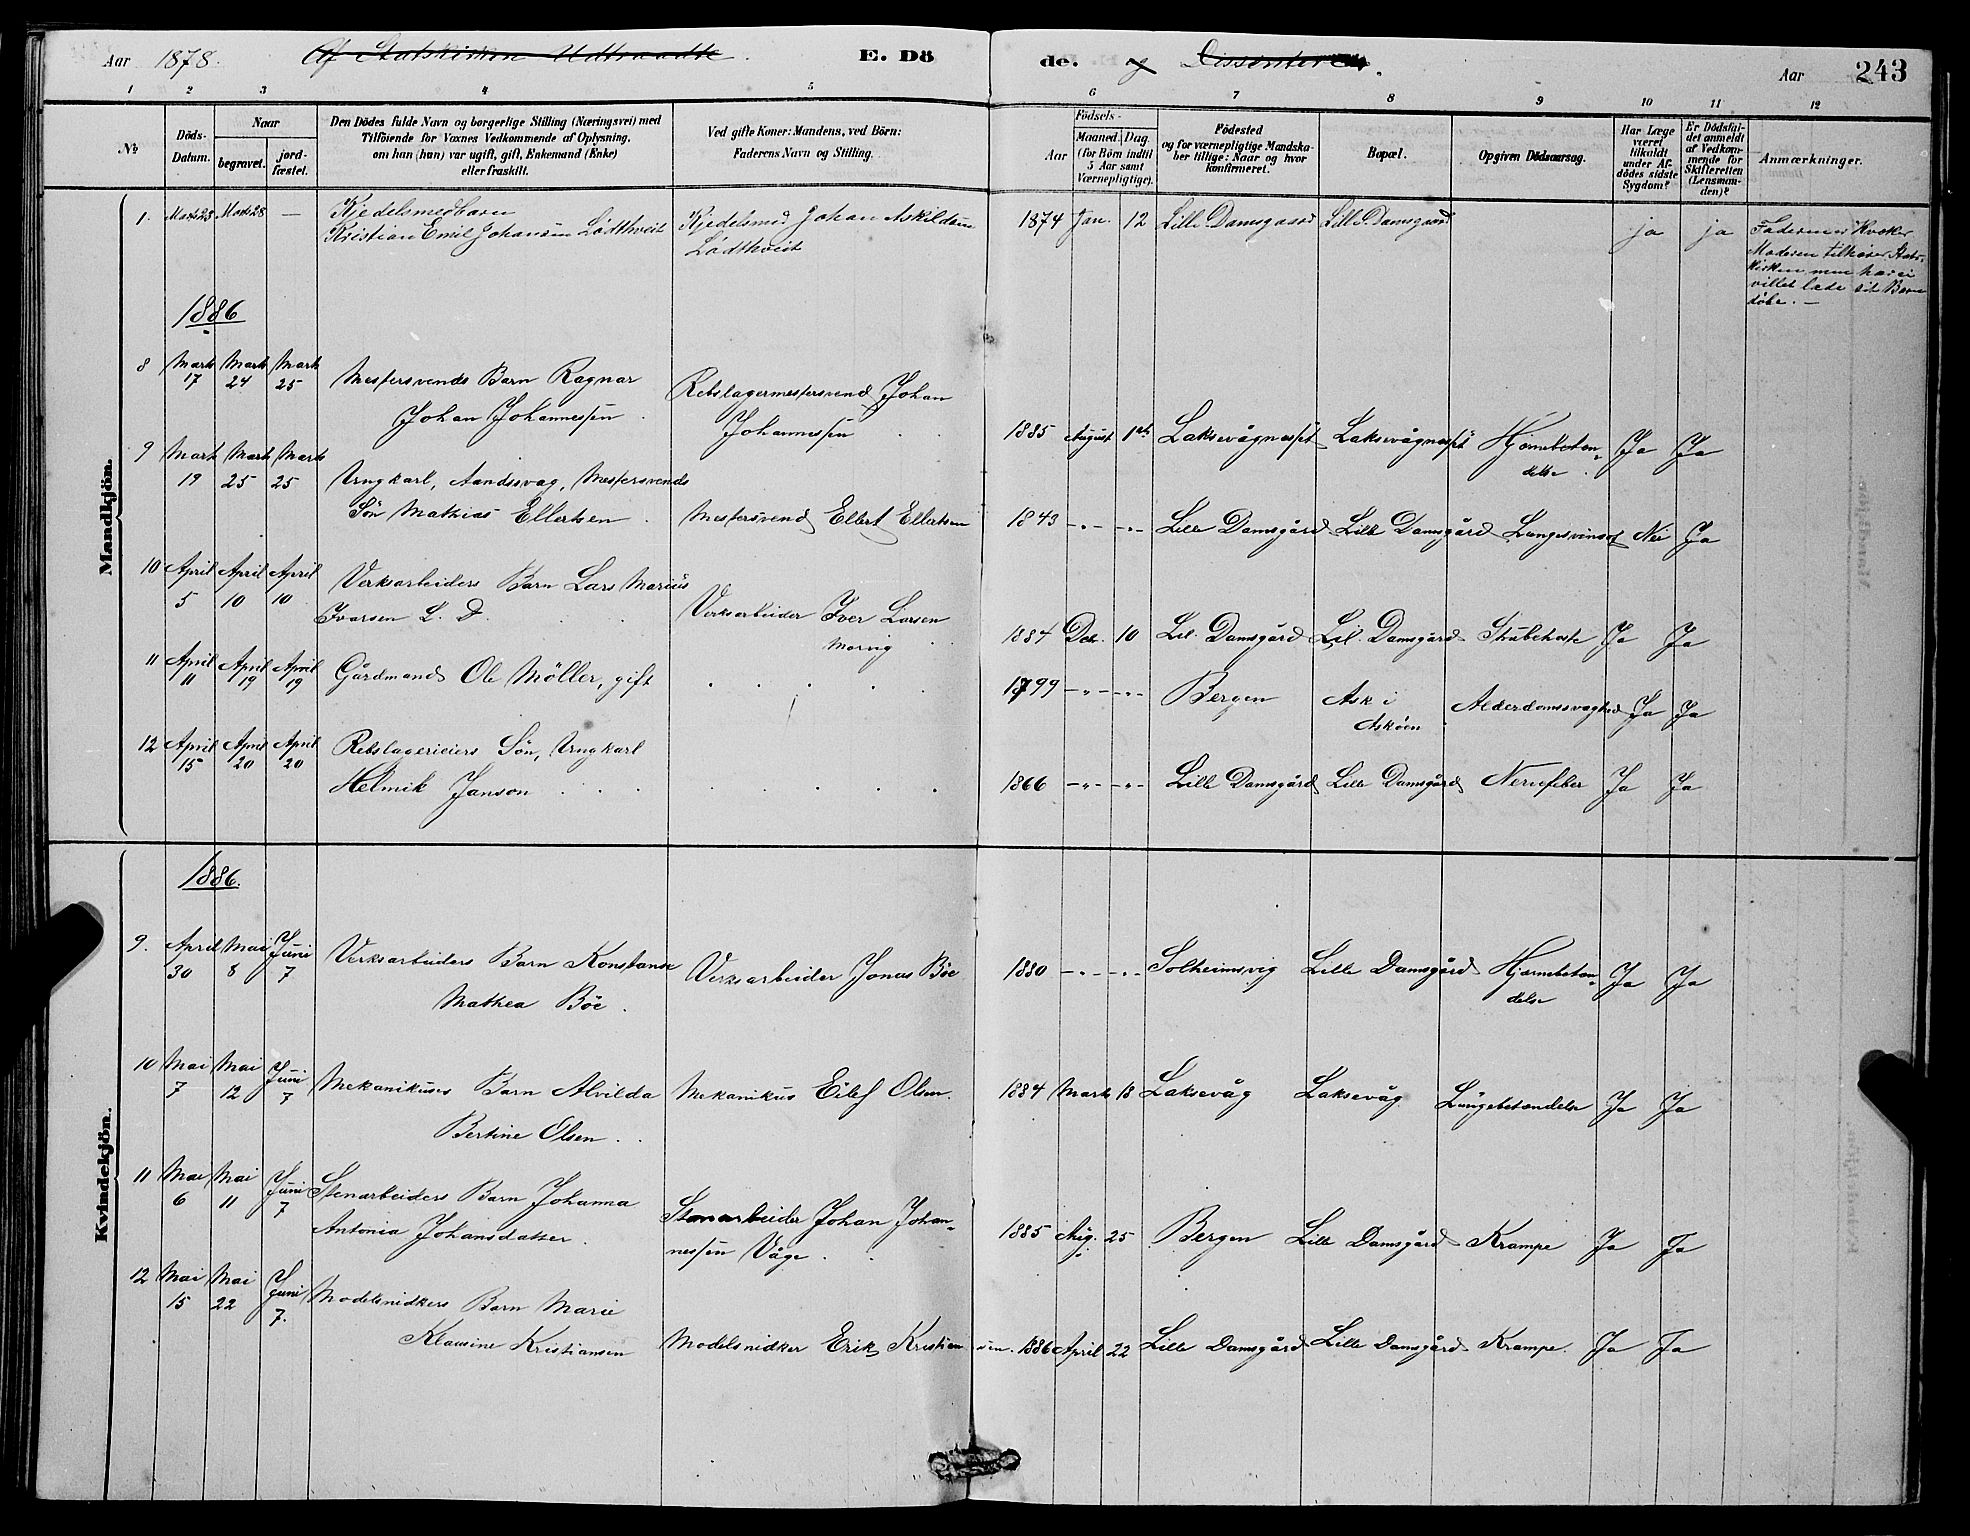 Aar 1878. Af Statskirken Udtraadte. E. Dö de. og Dissentere. Aar 243
1 2 3 4 5 6 7 8 9 10 11 12
№ Döds-Datum. Naar begravet. jord-fæstet. Den Dödes fulde Navn og borgerlige Stilling (Næringsvei) med Tilföiende for Voxnes Vedkommende af Oplysning, om han (hun) var ugift, gift, Enkemand (Enke) eller fraskilt. Ved gifte Koner: Mandens, ved Börn: Faderens Navn og Stilling. Födsels- Aar Maaned Dag (for Börn indtil 5 Aar samt Værnepligtige). Födested og for værnepligtige Mandskaber tillige: Naar og hvor konfirmeret. Bopæl. Opgiven Dödsaarsag. Har Læge været tilkaldt under Afdödes sidste Sygdom? Er Dödsfaldet anmeldt af Vedkommende for Skifteretten (Lensmanden)? Anmærkninger.
Mandkjön.
1. Marts 23 Marts 28 — Kjedelsmedbarn Kjedelsmed Johan Askildsen 1874 Jan. 12 Lille Damsgaard Lille Damsgaard ja ja Faderen er Kvæker
Kristian Emil Johansen Lødthveit Lødthveit Moderen tilhører Stats-
kirken men har ei
villet lade sit Barn
döbe. —
1886
8 Marts 17 Marts 24 Marts 25 Mestersvends Barn Ragnar Rebslagermestersvend Johan
Johan Johannessen Johannessen 1885 August 1ste Laksevågnæset Laksevågnæset Hjernebetændelse Ja Ja
9 Marts 19 Marts 25 Marts 25 Ungkarl, Aandssvag, Mestersvends
Sön Mathias Ellertsen Mestersvend Ellert Ellertsen 1843 -"- -"- Lille Damsgård Lille Damsgård Lungesvinsot Nei Ja
10 April 5 April 10 April 10 Verksarbeiders Barn Lars Marius
Ivarsen L. D. Verksarbeider Iver Larsen
Morvig 1884 Dec. 10 Lil. Damsgård Lil. Damsgård Strubehoste Ja Ja
11 April 11 April 19 April 19 Gårdmand Ole Möller, gift 1799 -"- -"- Bergen Ask i Asköen Alderdomssvaghed Ja Ja
12 April 15 April 20 April 20 Rebslagerieiers Sön, Ungkarl
Helmik Janson 1866 -"- -"- Lille Damsgård Lille Damsgård Nervefeber Ja Ja
Kvindekjön.
1886.
9. April 30 Mai 8 Juni 7 Verksarbeiders Barn Konstanse Verksarbeider Jonas Böe 1880 -"- -"- Solheimsvig Lille Damsgård Hjernebetændelse Ja Ja
Mathea Böe.
10 Mai 7 Mai 12 Juni 7 Mekanikuses Barn Alvilda Mekanikus Eilef Olsen. 1884 Marts 18 Laksevåg Laksevåg Lungebetændelse Ja Ja
Bertine Olsen
11 Mai 6 Mai 11 Juni 7 Stenarbeiders Barn Johanna Stenarbeider Johan Johan-
Antonia Johansdatter. nessen Våge. 1885 Aug. 25 Bergen Lille Damsgård Krampe Ja Ja
12 Mai 15 Mai 22 Juni 7. Modelsnidkers Barn Marie
Klausine Kristiansen Modelsnidker Erik Kristiansen. 1886 April 22 Lille Damsgård Lille Damsgård Krampe. Ja Ja